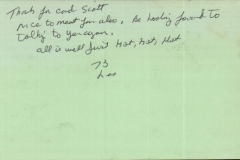 Thanks for card Scott
nice to meet you also, Be looking forward to
talking to you again.
all is well just Hot, hot, Hot
73
Les